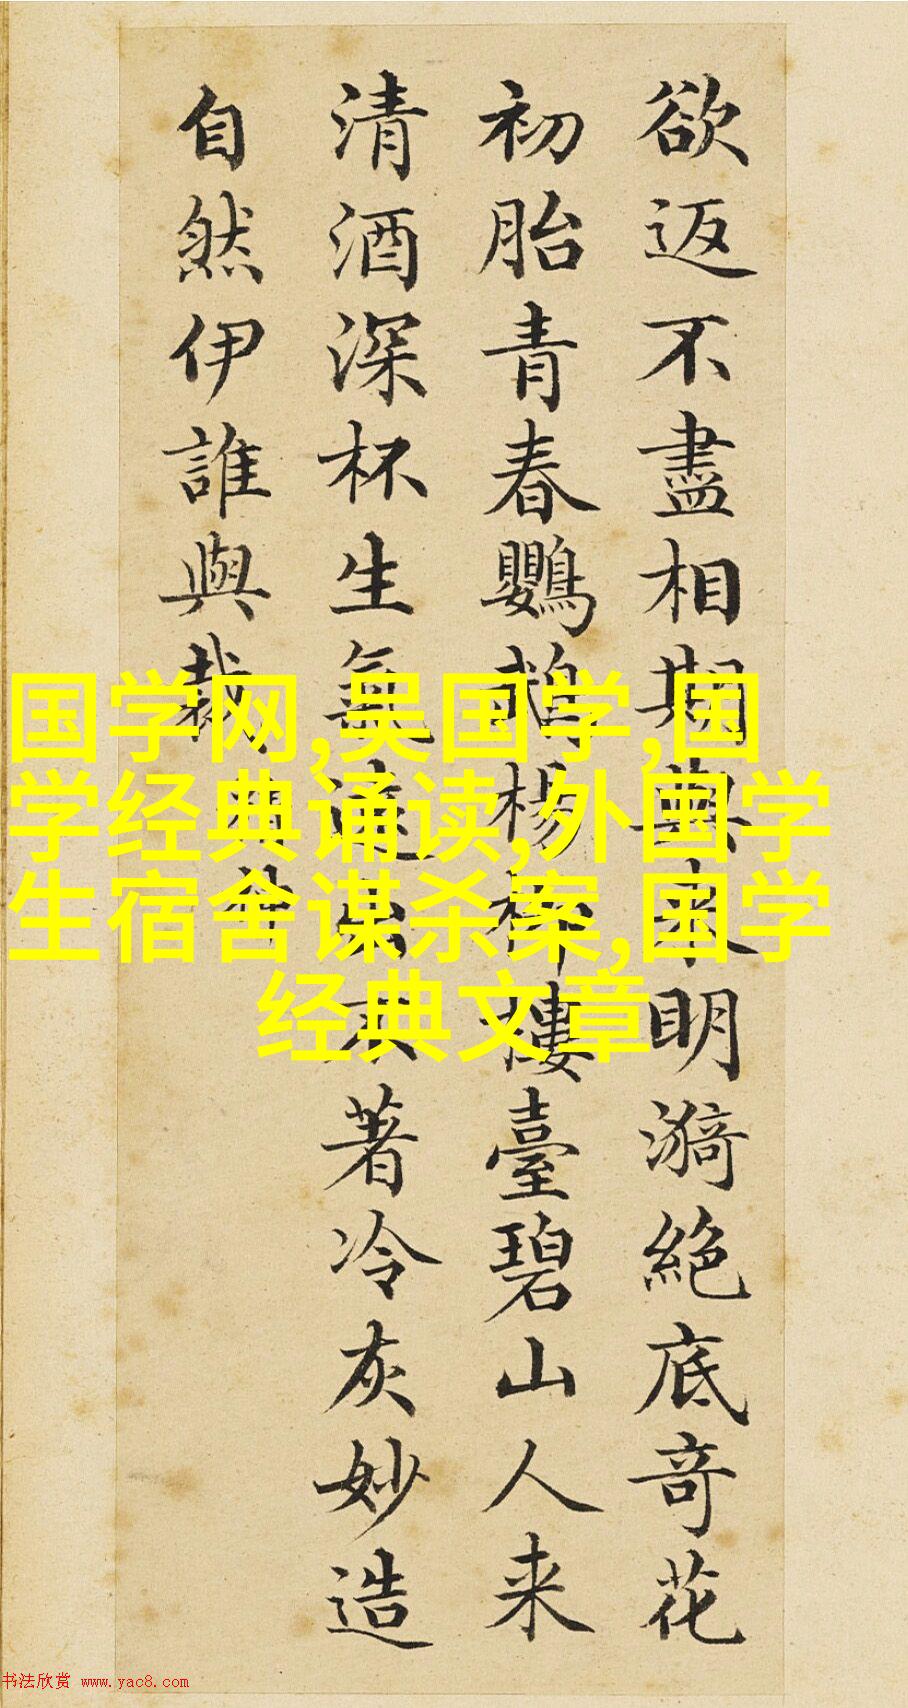 欲返不盡相期與来明漪絕底奇花
初胎青春鸚鵡楊柳樓臺碧山人来
清酒深杯生氣遠出不著冷灰妙造
自然伊誰與裁
精神
国学网,吴国学,国
学经典诵读,外国学
生宿舍谋杀案,国学
经典文章
书法欣赏 www.yac8.com